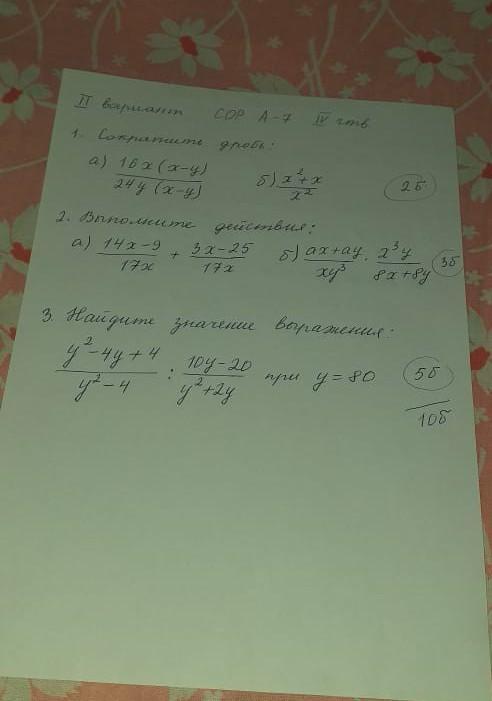 II вариант СОР А-7 IV четв.
1. Сократите дробь:
а) 16x(x-y)/24y(x-y) б) x²+x/x² 2б
2. Выполните действия:
а) 14x-9/17x + 3x-25/17x б) ax+ay/xy³ · x³y/8x+8y 3б
3. Найдите значение выражения:
y²-4y+4/y²-4 : 10y-20/y²+2y при y=80 5б
10б